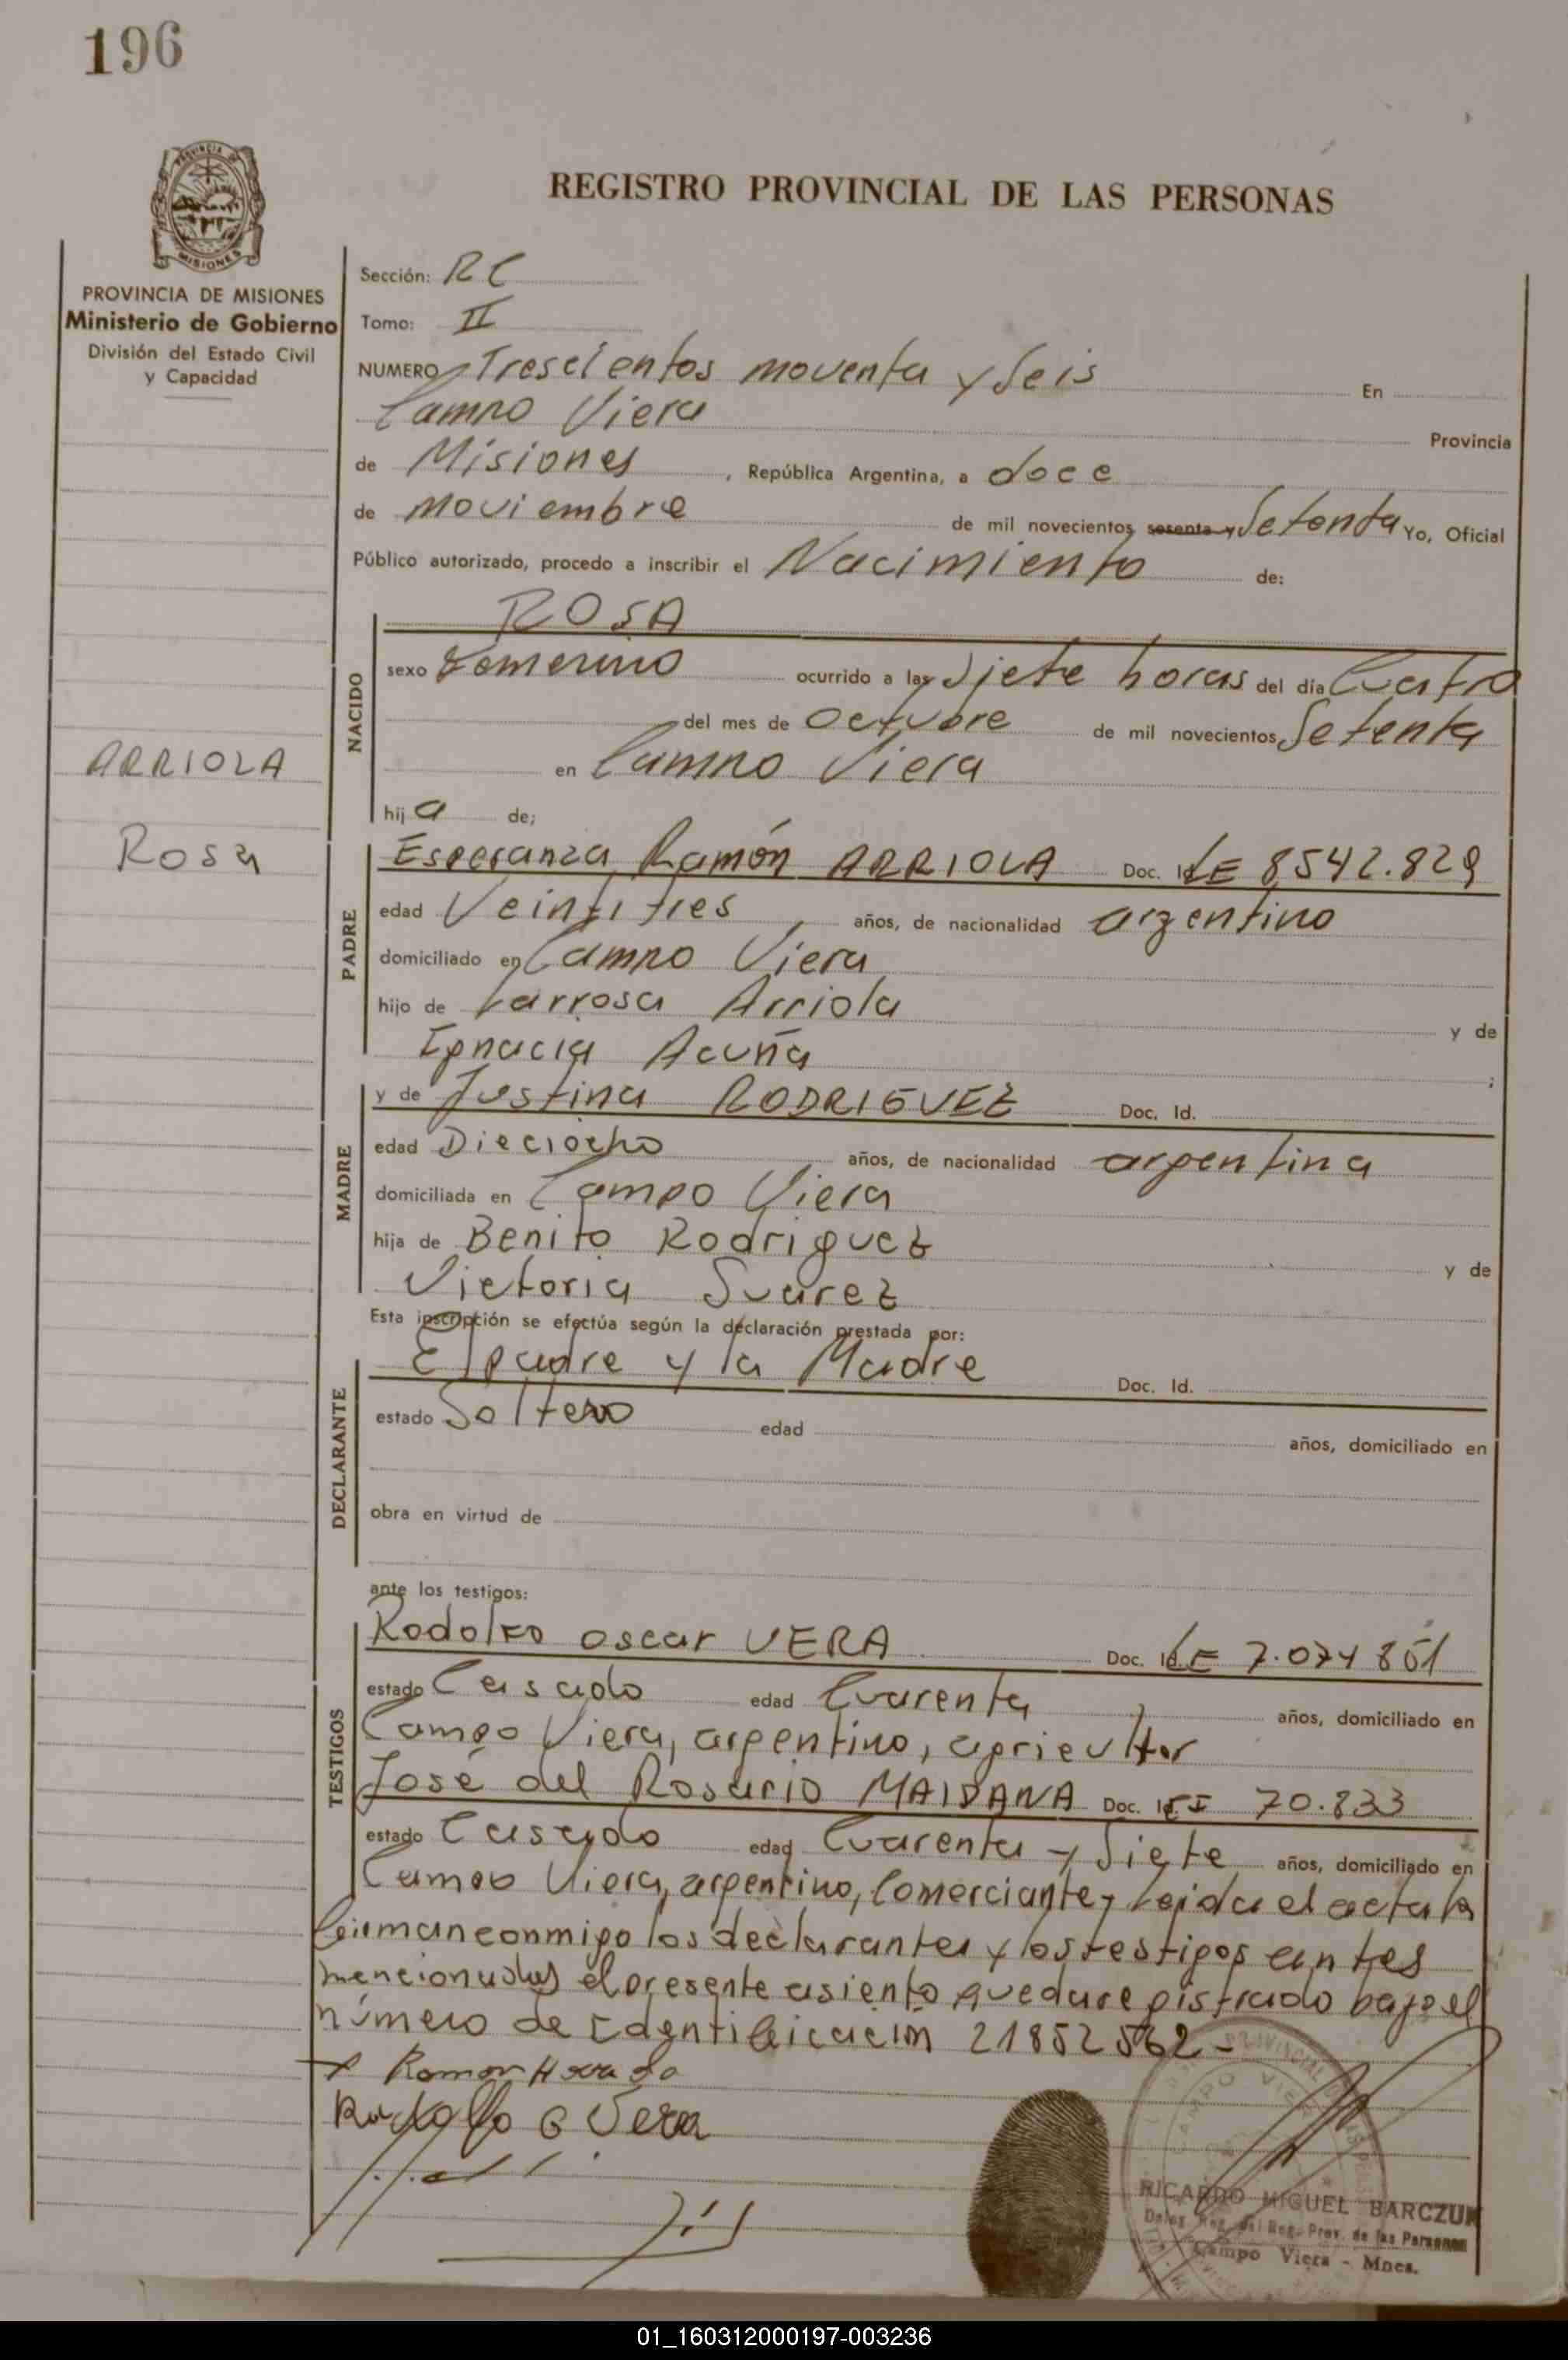 196
PROVINCIA DE
MISIONES
REGISTRO PROVINCIAL DE LAS PERSONAS
PROVINCIA DE MISIONES
Ministerio de Gobierno
División del Estado Civil
y Capacidad
ARRIOLA
Rosa
Sección: RC
Tomo: II
NUMERO Trescientos noventa y Seis En
Campo Viera Provincia
de Misiones, República Argentina, a doce
de noviembre de mil novecientos sesenta y Setenta Yo, Oficial
Público autorizado, procedo a inscribir el Nacimiento de:
NACIDO
ROSA
sexo Femenino ocurrido a las Siete horas del día Cuatro
del mes de Octubre de mil novecientos Setenta
en Campo Viera
hija de;
PADRE
Esperanza Ramón ARRIOLA Doc. Id. LE 8542.829
edad Veintitres años, de nacionalidad argentino
domiciliado en Campo Viera
hijo de Larrosa Arriola y de
Ignacia Acuña ;
MADRE
y de Justina RODRIGUEZ Doc. Id.
edad Dieciocho años, de nacionalidad argentina
domiciliada en Campo Viera
hija de Benito Rodriguez y de
Victoria Suarez
Esta inscripción se efectúa según la declaración prestada por:
DECLARANTE
El padre y la Madre Doc. Id.
estado Soltero edad años, domiciliado en
obra en virtud de
ante los testigos:
TESTIGOS
Rodolfo Oscar VERA Doc. Id. LE 7.074 801
estado Casado edad Cuarenta años, domiciliado en
Campo Viera, argentino, agricultor
José del Rosario MAIDANA Doc. Id. CI 70.833
estado Casado edad Cuarenta y Siete años, domiciliado en
Campo Viera, argentino, Comerciante, Leida el acta la
firman conmigo los declarantes y los testigos antes
mencionados el presente asiento queda registrado bajo el
número de Identificación 21852562-
Ramon
Rodolfo O Vera
CAMPO VIERA
RICARDO MIGUEL BARCZUK
Deleg. Reg. del Reg. Prov. de las Personas
Campo Viera - Mnes.
01_160312000197-003236